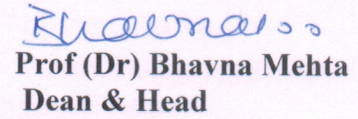 Prof (Dr) Bhavna Mehta
Dean & Head